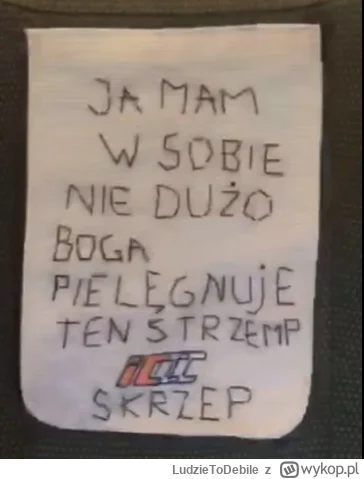 JA MAM
W SOBIE
NIE DUŻO
BOGA
PIELĘGNUJE
TEN STRZEMP
SKRZEP
LudzieToDebile z wykop.pl